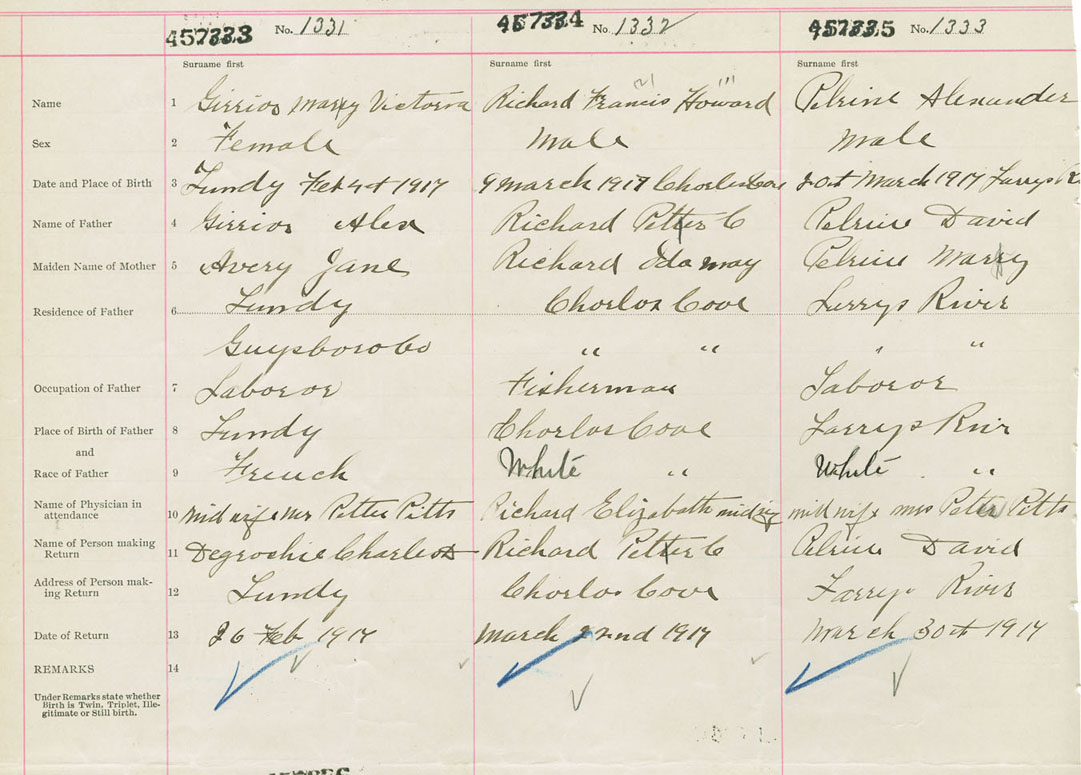 457333 No. 1331 457334 No. 1332 457335 No. 1333
Surname first Surname first Surname first
Name 1 Girrior Marry Victoria Richard Francis Howard Pelrine Alexander
Sex 2 Female Male Male
Date and Place of Birth 3 Lundy Feb 1917 9 March 1917 Charlos Cove 20st March 1917 Larrys
Name of Father 4 Girrior Alex Richard Petter C Pelrine David
Maiden Name of Mother 5 Avery Jane Richard Oda May Pelrine Marry
Residence of Father 6 Lundy Chorlos Cove Larrys River
Guysboro Co " " " "
Occupation of Father 7 Laboror Fisherman Laboror
Place of Birth of Father 8 Lundy Chorlos Cove Larrys Rivir
and
Race of Father 9 French White " White "
Name of Physician in
attendance 10 midwife Mrs Petter Pitts Richard Elizabeth midwife midwife Mrs Peter Pitts
Name of Person making
Return 11 Degrochie Charles Richard Petter C Pelrine David
Address of Person mak-
ing Return 12 Lundy Chorlos Cove Larrys River
Date of Return 13 26 Feb 1917 March 22nd 1917 March 30th 1917
REMARKS 14
Under Remarks state whether
Birth is Twin, Triplet, Ille-
gitimate or Still birth.